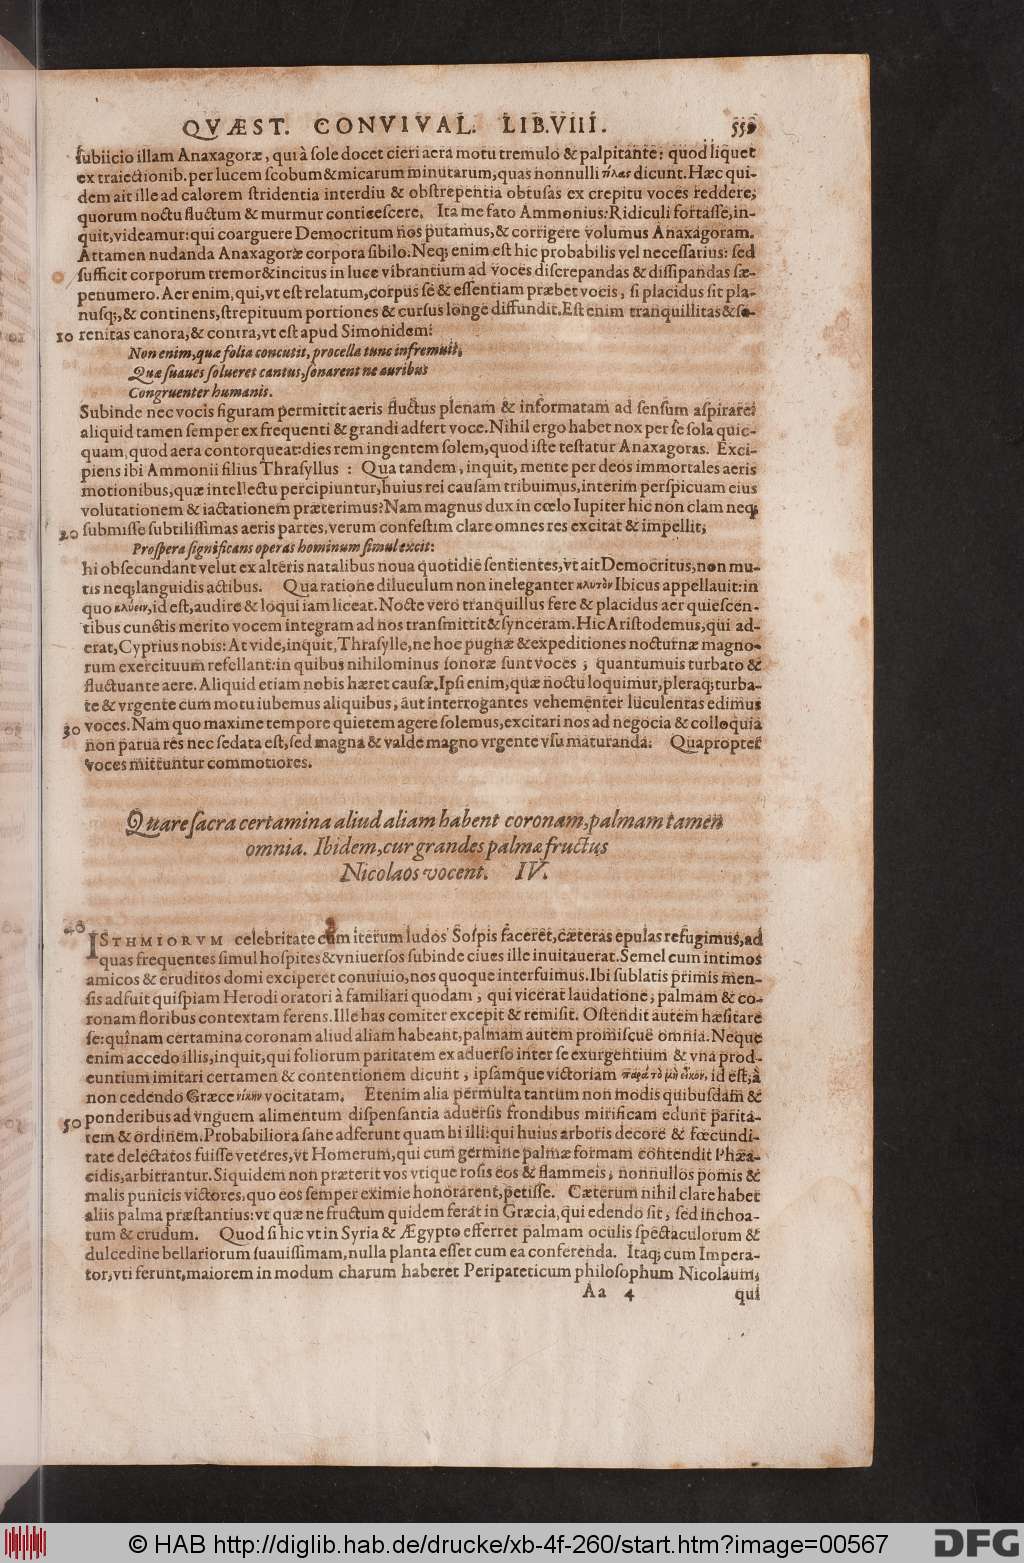 QVÆST. CONVIVAL. LIB. VIII. 559
subiicio illam Anaxagoræ, qui à sole docet cieri aera motu tremulo & palpitante: quod liquet
ex traiectionib. per lucem scobum & micarum minutarum, quas nonnulli τίλας dicunt. Hæc qui-
dem ait ille ad calorem stridentia interdiu & obstrepentia obtusas ex crepitu voces reddere;
quorum noctu fluctum & murmur conticescere. Ita me fato Ammonius: Ridiculi fortasse, in-
quit, videamur: qui coarguere Democritum nos putamus, & corrigere volumus Anaxagoram.
Attamen nudanda Anaxagoræ corpora sibilo. Neq; enim est hic probabilis vel necessarius: sed
sufficit corporum tremor & incitus in luce vibrantium ad voces discrepandas & dissipandas sæ-
penumero. Aer enim, qui, vt est relatum, corpus se & essentiam præbet vocis, si placidus sit pla-
nusq;, & continens, strepituum portiones & cursus longè diffundit. Est enim tranquillitas & se-
10 renitas canora, & contra, vt est apud Simonidem:
Non enim, quæ folia concutit, procella tunc infremuit,
Quæ suaues solueret cantus, sonarent ne auribus
Congruenter humanis.
Subinde nec vocis figuram permittit aeris fluctus plenam & informatam ad sensum aspirare:
aliquid tamen semper ex frequenti & grandi adfert voce. Nihil ergo habet nox per se sola quic-
quam, quod aera contorqueat: dies rem ingentem solem, quod iste testatur Anaxagoras. Exci-
piens ibi Ammonii filius Thrasyllus : Qua tandem, inquit, mente per deos immortales aeris
motionibus, quæ intellectu percipiuntur, huius rei causam tribuimus, interim perspicuam eius
volutationem & iactationem præterimus? Nam magnus dux in cœlo Iupiter hic non clam neq;
20 submisse subtilissimas aeris partes, verum confestim clare omnes res excitat & impellit;
Prospera significans operas hominum simul excit:
hi obsecundant velut ex alteris natalibus noua quotidiè sentientes, vt ait Democritus, non mu-
tis neq; languidis actibus. Qua ratione diluculum non ineleganter κλυτὸν Ibicus appellauit: in
quo κλύειν, id est, audire & loqui iam liceat. Nocte vero tranquillus fere & placidus aer quiescen-
tibus cunctis merito vocem integram ad nos transmittit & synceram. Hic Aristodemus, qui ad-
erat, Cyprius nobis: At vide, inquit, Thrasylle, ne hoc pugnæ & expeditiones nocturnæ magno-
rum exercituum refellant: in quibus nihilominus sonoræ sunt voces ; quantumuis turbato &
fluctuante aere. Aliquid etiam nobis hæret causæ. Ipsi enim, quæ noctu loquimur, pleraq; turba-
te & vrgente cum motu iubemus aliquibus, aut interrogantes vehementer luculentas edimus
30 voces. Nam quo maxime tempore quietem agere solemus, excitari nos ad negocia & colloquia
non parua res nec sedata est, sed magna & valde magno vrgente vsu maturanda. Quapropter
voces mittuntur commotiores.
Quare sacra certamina aliud aliam habent coronam, palmam tamen
omnia. Ibidem, cur grandes palmæ fructus
Nicolaos vocent. IV.
40 ISTHMIORVM celebritate cum iterum ludos Sospis faceret, cæteras epulas refugimus, ad
quas frequentes simul hospites & vniuersos subinde ciues ille inuitauerat. Semel cum intimos
amicos & eruditos domi exciperet conuiuio, nos quoque interfuimus. Ibi sublatis primis men-
sis adfuit quispiam Herodi oratori à familiari quodam, qui vicerat laudatione, palmam & co-
ronam floribus contextam ferens. Ille has comiter excepit & remisit. Ostendit autem hæsitare
se: quînam certamina coronam aliud aliam habeant, palmam autem promiscuè omnia. Neque
enim accedo illis, inquit, qui foliorum paritatem ex aduerso inter se exurgentium & vna prod-
euntium imitari certamen & contentionem dicunt, ipsamque victoriam παρὰ τὸ μὴ εἶκον, id est, à
non cedendo Græce νίκην vocitatam. Etenim alia permulta tantum non modis quibusdam &
50 ponderibus ad vnguem alimentum dispensantia aduersis frondibus mirificam edunt parita-
tem & ordinem. Probabiliora sane adferunt quam hi illi: qui huius arboris decore & fœcundi-
tate delectatos fuisse veteres, vt Homerum, qui cum germine palmæ formam contendit Phæa-
cidis, arbitrantur. Siquidem non præterit vos vtique rosis eos & flammeis, nonnullos pomis &
malis punicis victores, quo eos semper eximie honorarent, petisse. Cæterum nihil clare habet
aliis palma præstantius: vt quæ ne fructum quidem ferat in Græcia, qui edendo sit, sed inchoa-
tum & crudum. Quod si hic vt in Syria & Ægypto efferret palmam oculis spectaculorum &
dulcedine bellariorum suauissimam, nulla planta esset cum ea conferenda. Itaq; cum Impera-
tor, vti ferunt, maiorem in modum charum haberet Peripateticum philosophum Nicolaum,
Aa 4 qui
© HAB http://diglib.hab.de/drucke/xb-4f-260/start.htm?image=00567
DFG